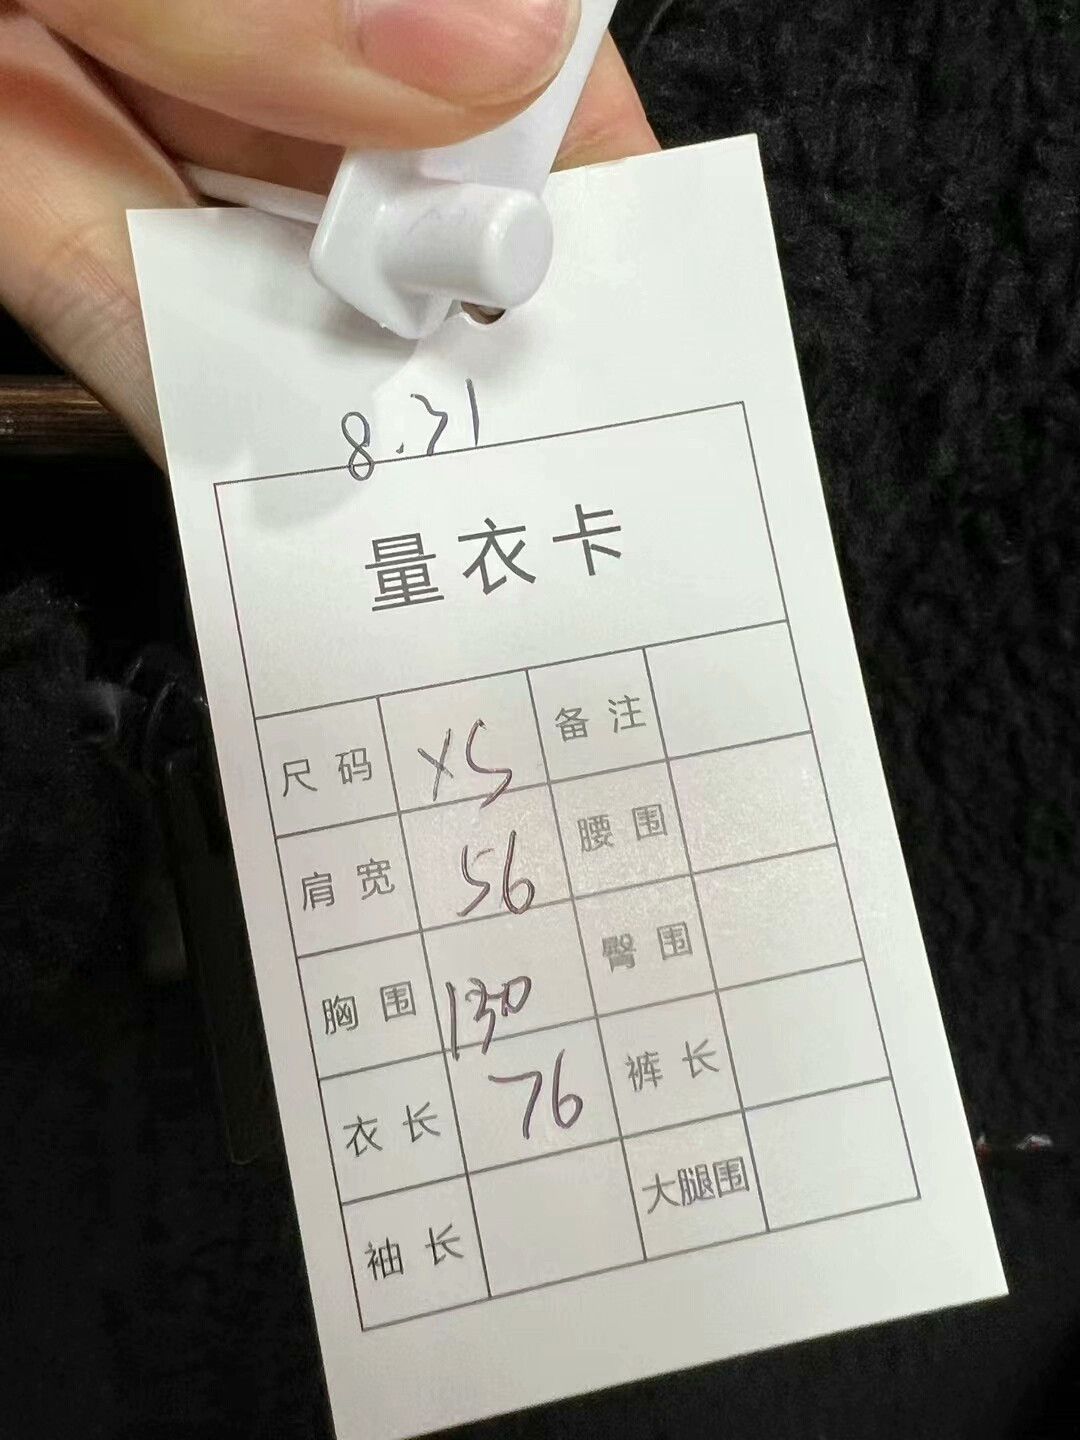 8.31
量衣卡
尺码 XS 备注
肩宽 56 腰围
胸围 130 臀围
衣长 76 裤长
袖长 大腿围